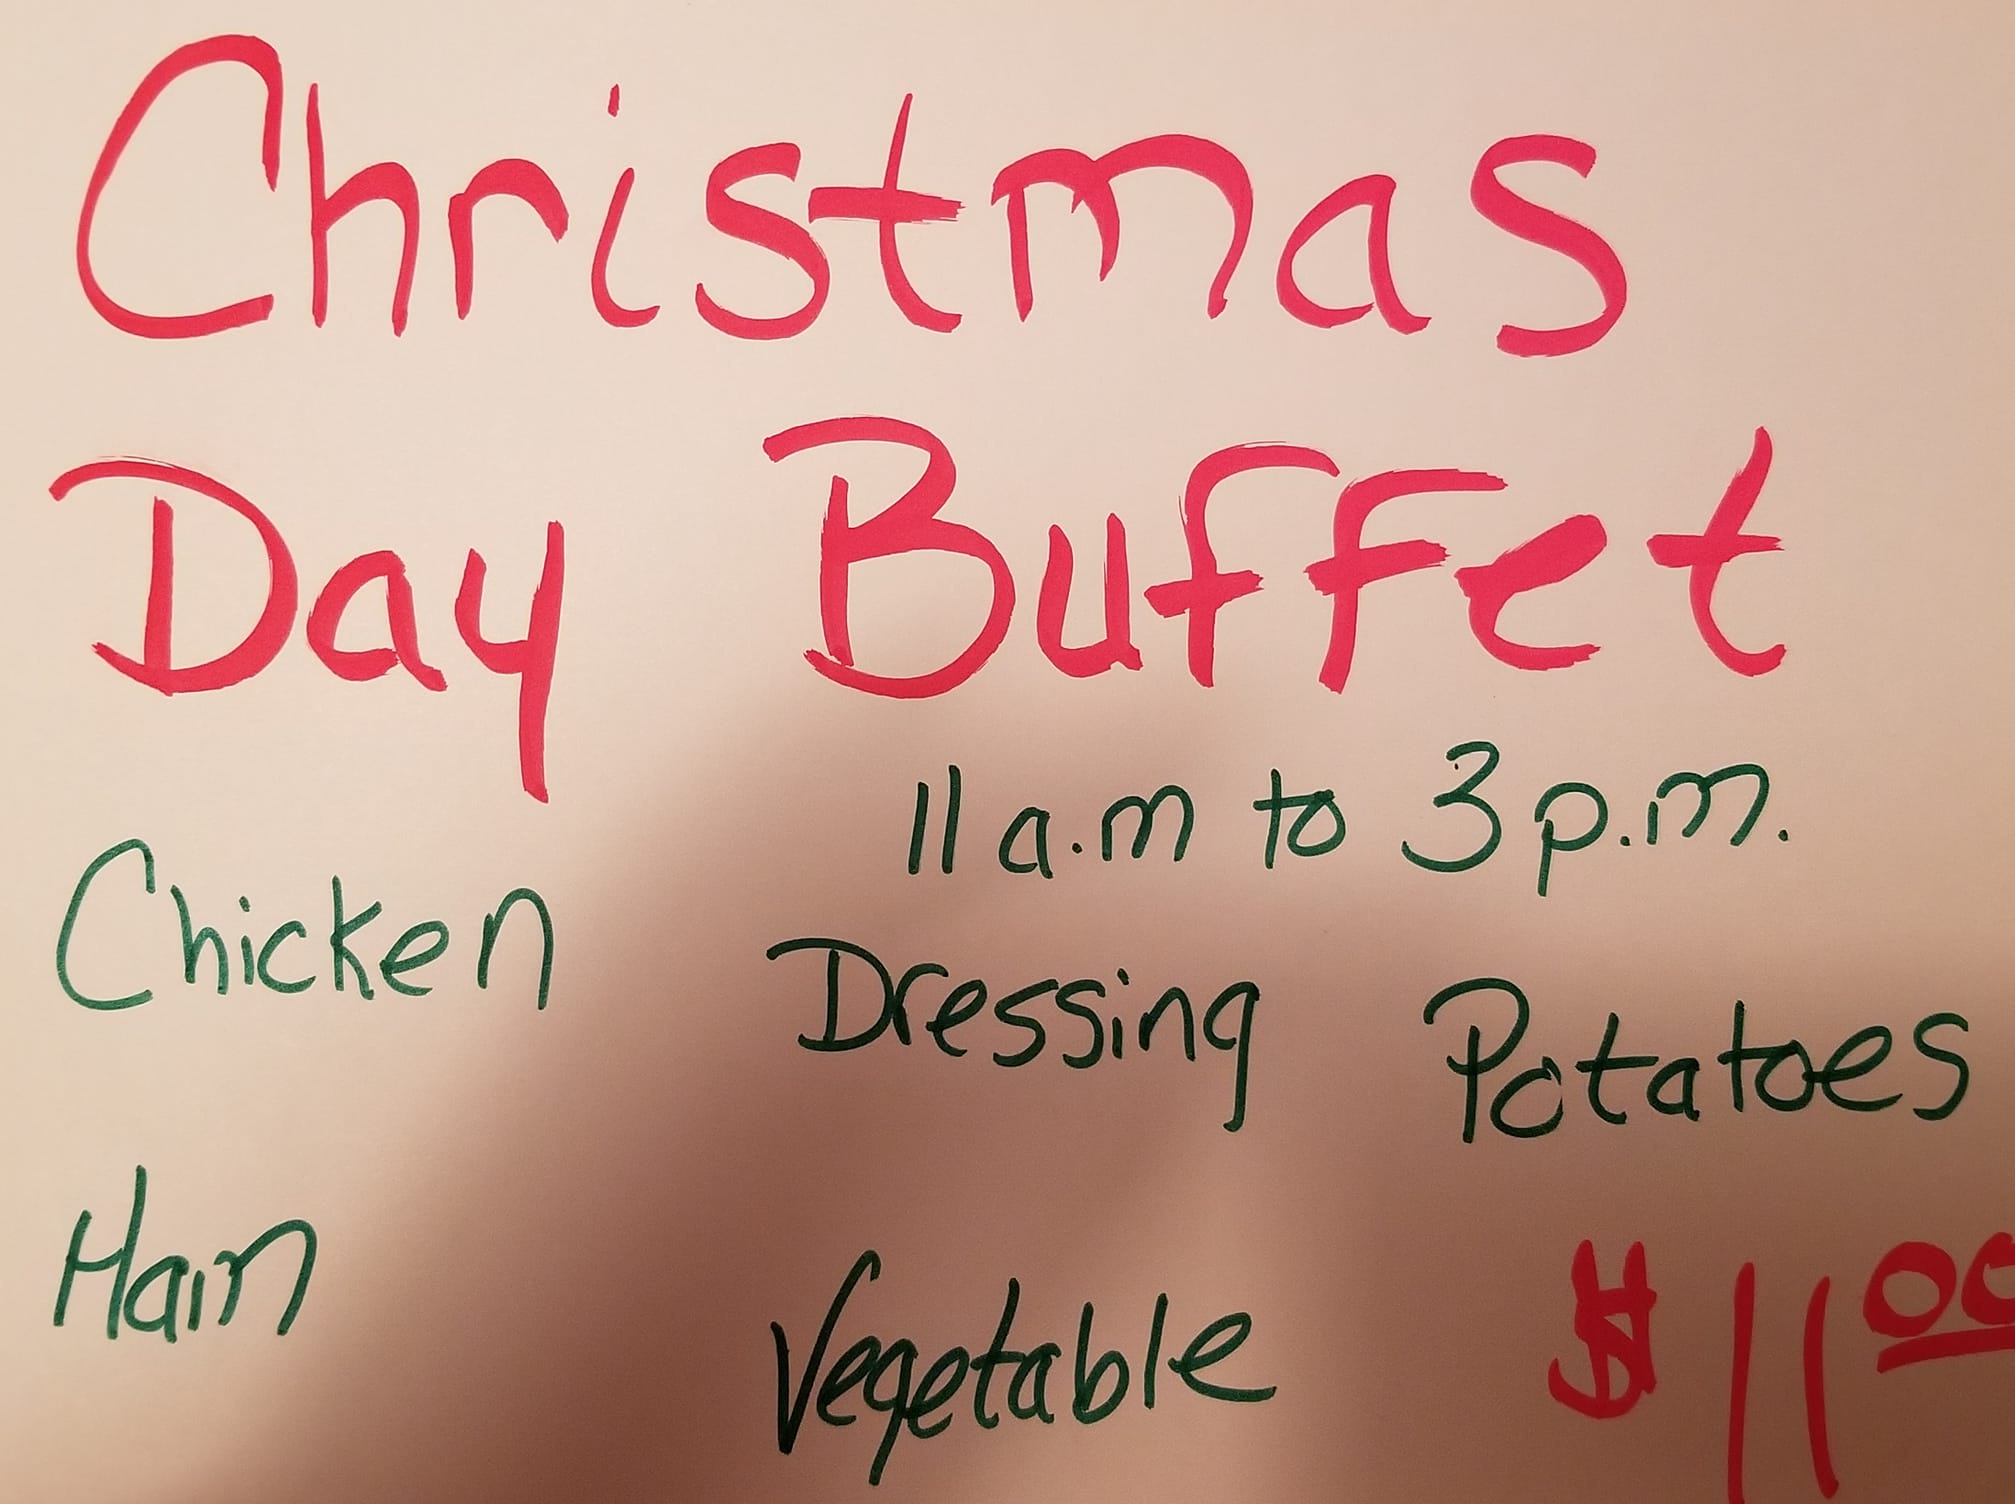 Christmas
Day Buffet
11 a.m to 3 p.m.
Chicken Dressing Potatoes
Ham Vegetable $11.00